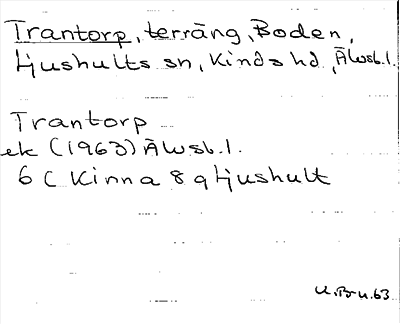 Trantorp, terräng, Boden,
Ljushults sn, Kinds hd, Älvsb.l.
Trantorp
ek (1963) Älvsb.l.
6 C Kinna 8 g Ljushult
U.Br u.63